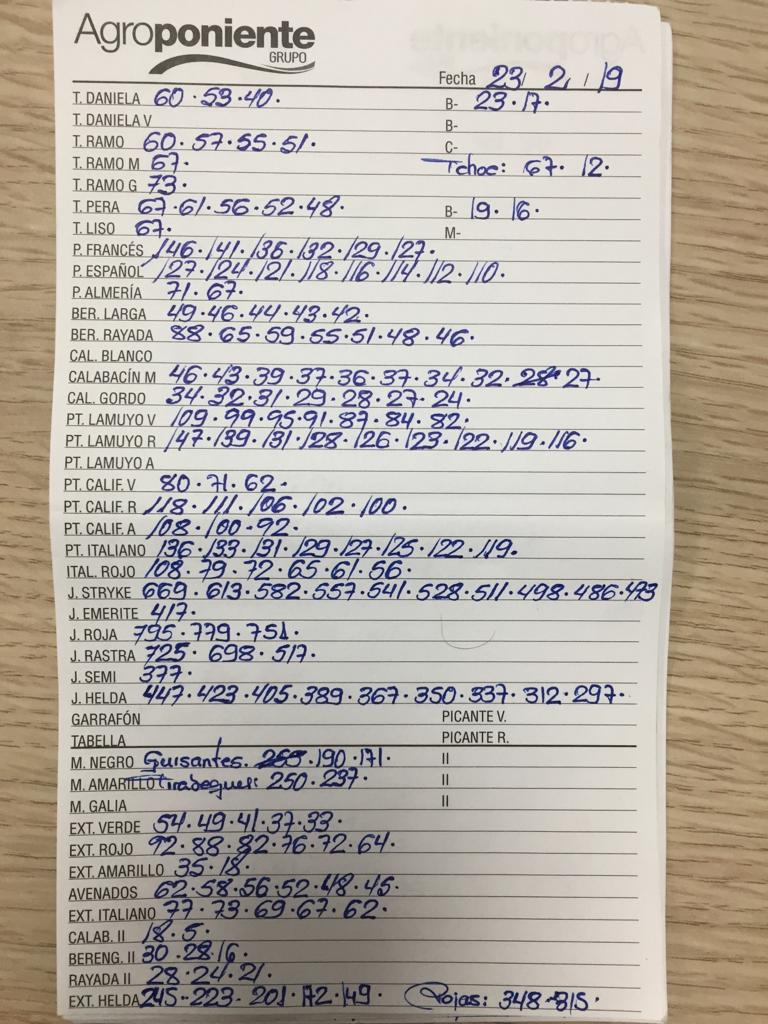 Agroponiente
GRUPO
Fecha 23/ 2/ /19
T. DANIELA 60 · 53 · 40. B- 23 · 17.
T. DANIELA V B-
T. RAMO 60 · 57 · 55 · 51. C-
T. RAMO M 67. Tchoc: 67 · 12.
T. RAMO G 73.
T. PERA 67 · 61 · 56 · 52 · 48. B- 19 · 16.
T. LISO 67. M-
P. FRANCÉS 146 · 141 · 136 · 132 · 129 · 127.
P. ESPAÑOL 127 · 124 · 121 · 118 · 116 · 114 · 112 · 110.
P. ALMERÍA 71 · 67.
BER. LARGA 49 · 46 · 44 · 43 · 42.
BER. RAYADA 88 · 65 · 59 · 55 · 51 · 48 · 46.
CAL. BLANCO
CALABACÍN M 46 · 43 · 39 · 37 · 36 · 37 · 34 · 32 · 28 · 27.
CAL. GORDO 34 · 32 · 31 · 29 · 28 · 27 · 24.
PT. LAMUYO V 109 · 99 · 95 · 91 · 87 · 84 · 82.
PT. LAMUYO R 147 · 139 · 131 · 128 · 126 · 123 · 122 · 119 · 116.
PT. LAMUYO A
PT. CALIF. V 80 · 71 · 62.
PT. CALIF. R 118 · 111 · 106 · 102 · 100.
PT. CALIF. A 108 · 100 · 92.
PT. ITALIANO 136 · 133 · 131 · 129 · 127 · 125 · 122 · 119.
ITAL. ROJO 108 · 79 · 72 · 65 · 61 · 56.
J. STRYKE 669 · 613 · 582 · 557 · 541 · 528 · 511 · 498 · 486 · 473
J. EMERITE 417.
J. ROJA 795 · 779 · 751.
J. RASTRA 725 · 698 · 517.
J. SEMI 377.
J. HELDA 447 · 423 · 405 · 389 · 367 · 350 · 337 · 312 · 297.
GARRAFÓN PICANTE V.
TABELLA PICANTE R.
M. NEGRO Guisantes. 190 · 171. II
M. AMARILLO 250 · 237. II
M. GALIA II
EXT. VERDE 54 · 49 · 41 · 37 · 33.
EXT. ROJO 92 · 88 · 82 · 76 · 72 · 64.
EXT. AMARILLO 35 · 18.
AVENADOS 62 · 58 · 56 · 52 · 48 · 45.
EXT. ITALIANO 77 · 73 · 69 · 67 · 62.
CALAB. II 18 · 5.
BERENG. II 30 · 28 · 16.
RAYADA II 28 · 24 · 21.
EXT. HELDA 245 - 223 - 201 · 172 · 149. Rojas: 348 - 315.